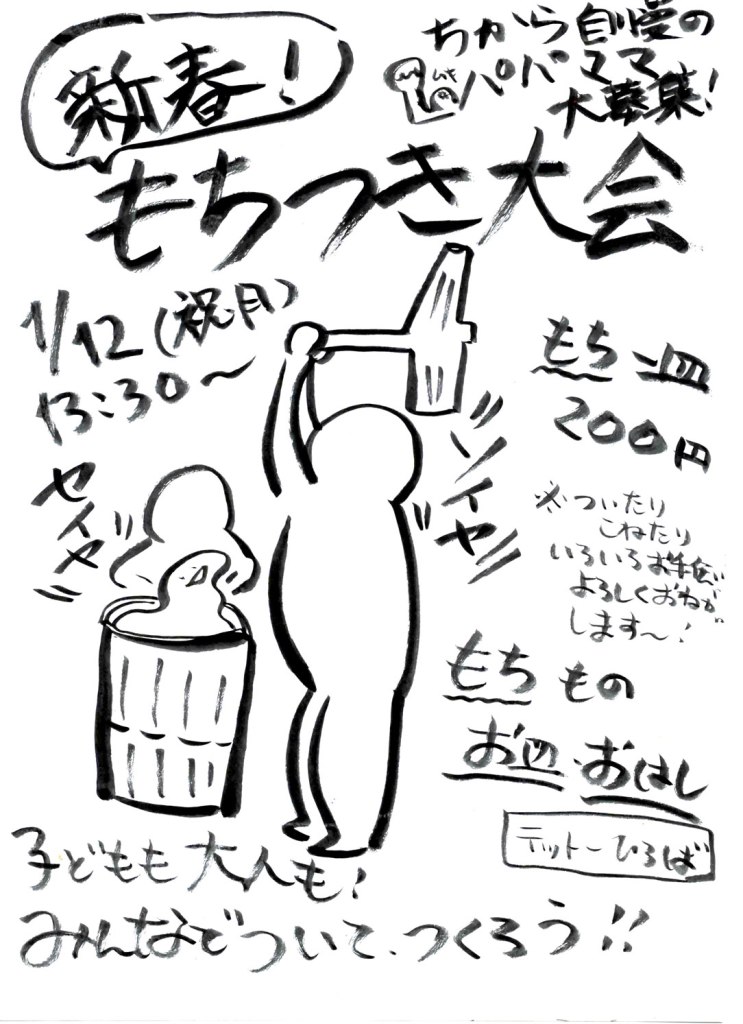 新春！
ちから自慢の
パパママ
大募集！
もちつき大会
1/12(祝月)
13:30〜
もち一皿
200円
ソイヤ
セイヤ
※ついたり
こねたり
いろいろお手伝い
よろしくおねがい
します〜！
もちもの
お皿・おはし
テットーひろば
子どもも大人も！
みんなでついて、つくろう!!